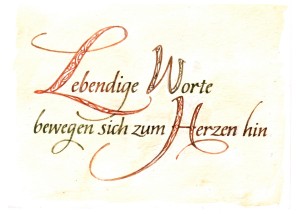 Lebendige Worte
bewegen sich zum Herzen hin